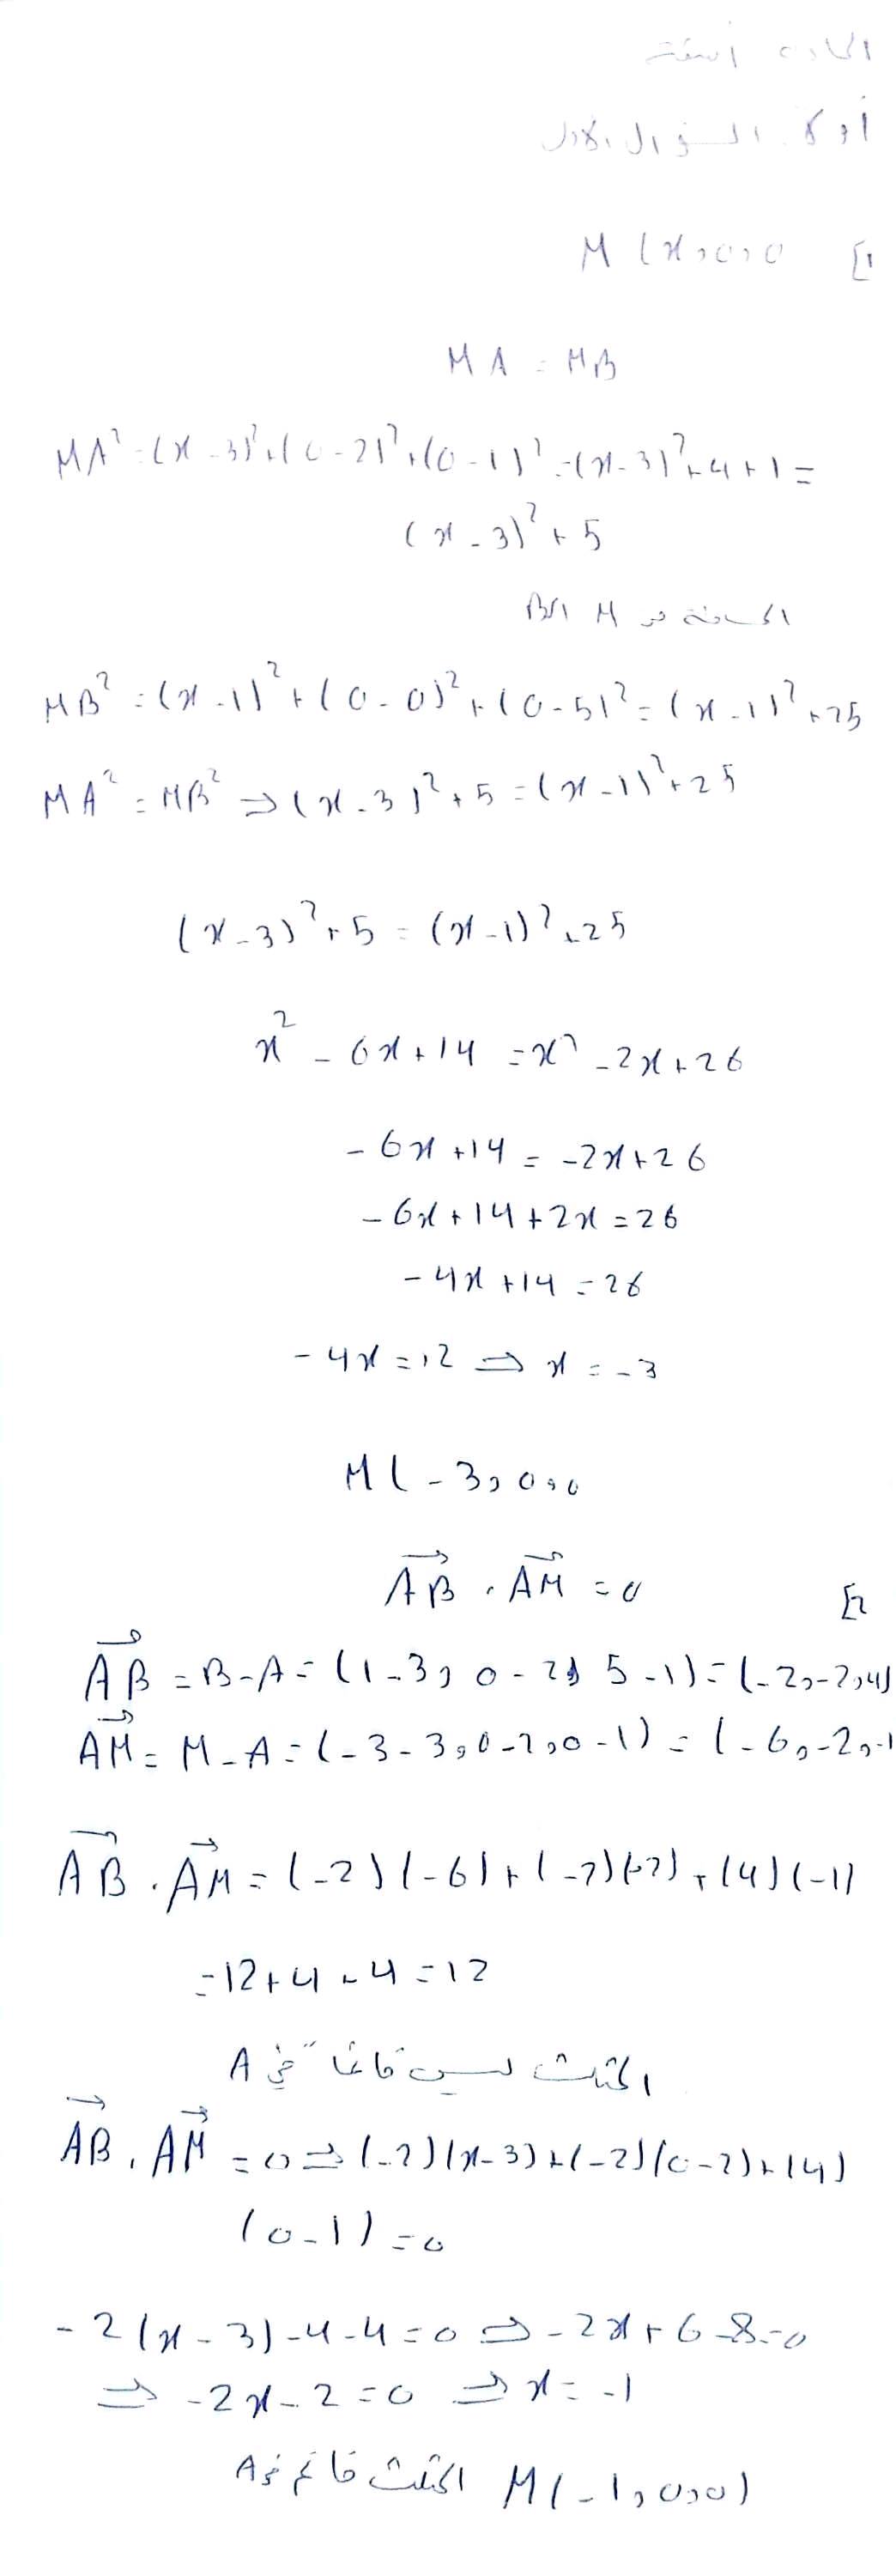 أولا السؤال الاول
1] M(x,0,0
MA = MB
MA² = (x-3)²+(0-2)²+(0-1)² = (x-3)²+4+1 =
(x-3)²+5
المسافة من M الى B
MB² = (x-1)²+(0-0)²+(0-5)² = (x-1)²+25
MA² = MB² ⇒ (x-3)²+5 = (x-1)²+25
(x-3)²+5 = (x-1)²+25
x² - 6x+14 = x² - 2x+26
-6x+14 = -2x+26
-6x+14+2x = 26
-4x+14 = 26
-4x = 12 ⇒ x = -3
M(-3,0,0
2] AB→ . AM→ = 0
AB→ = B-A = (1-3, 0-2, 5-1) = (-2,-2,4)
AM→ = M-A = (-3-3,0-2,0-1) = (-6,-2,-1
AB→ . AM→ = (-2)(-6)+(-2)(-2)+(4)(-1)
= 12+4-4 = 12
المثلث ليس قائما في A
AB→ . AM→ = 0 ⇒ (-2)(x-3)+(-2)(0-2)+(4)
(0-1) = 0
-2(x-3)-4-4 = 0 ⇒ -2x+6-8=0
⇒ -2x-2 = 0 ⇒ x = -1
M(-1,0,0) المثلث قائم في A